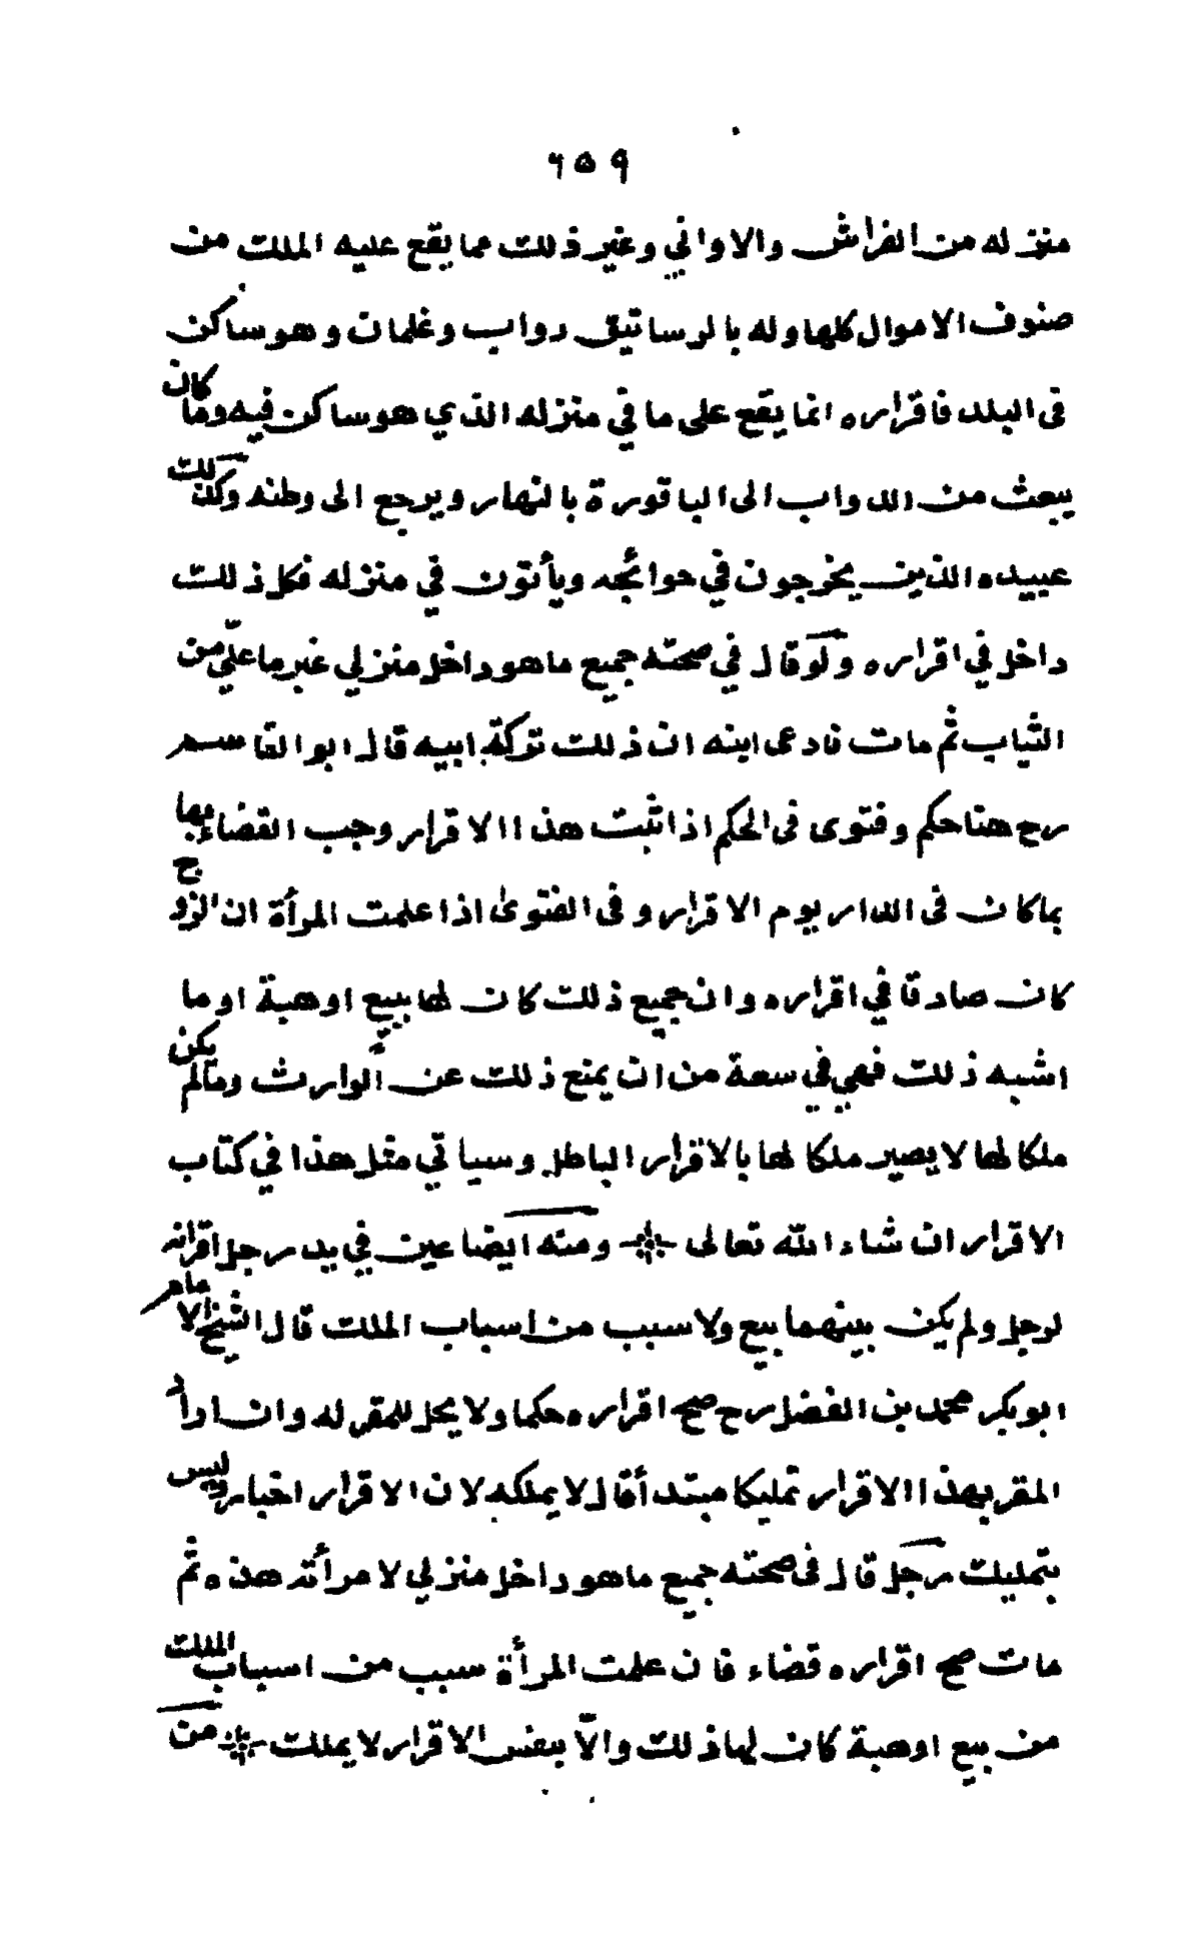 ٦٥٩
منزله من الفراش والاواني وغير ذلك مما يقع عليه الملك من
صنوف الاموال كلها وله بالرساتيق دواب وغلمان وهو ساكن
فى البلد فاقراره انما يقع على ما في منزله الذي هو ساكن فيه وما كان
يبعث من الدواب الى الباقورة بالنهار ويرجع الى وطنه وكذلك
عبيده الذين يخرجون في حوائجه ويأتون في منزله فكل ذلك
داخل في اقراره ولو قال في صحته جميع ما هو داخل منزلي غير ما علّي من
الثياب ثم مات فادعى ابنه ان ذلك تركة ابيه قال ابو القاسم
رح هنا حكم وفتوى فى الحكم اذا ثبت هذا الاقرار وجب القضاء بها
بما كان فى الدار يوم الاقرار وفى الفتوى اذا علمت المرأة ان الزوج
كان صادقا في اقراره وان جميع ذلك كان لها ببيع او هبة او ما
اشبه ذلك فهي في سعة من ان يمنع ذلك عن الوارث وما لم يكن
ملكا لها لا يصير ملكا لها بالاقرار الباطل وسياتي مثل هذا في كتاب
الاقرار ان شاء الله تعالى ※ ومنه ايضا عين في يد رجل اقر انه
لرجل ولم يكن بينهما بيع ولا سبب من اسباب الملك قال الشيخ الامام
ابو بكر محمد بن الفضل رح صح اقراره حكما ولا يحل للمقر له وان اراد
المقر بهذا الاقرار تمليكا مبتدأ قال لا يملكه لان الاقرار اخبار وليس
بتمليك رجل قال فى صحته جميع ما هو داخل منزلي لامرأته هذه ثم
مات صح اقراره قضاء فان علمت المرأة سبب من اسباب الملك
من بيع او هبة كان لها ذلك والّا بنفس الاقرار لا يملك ※ من